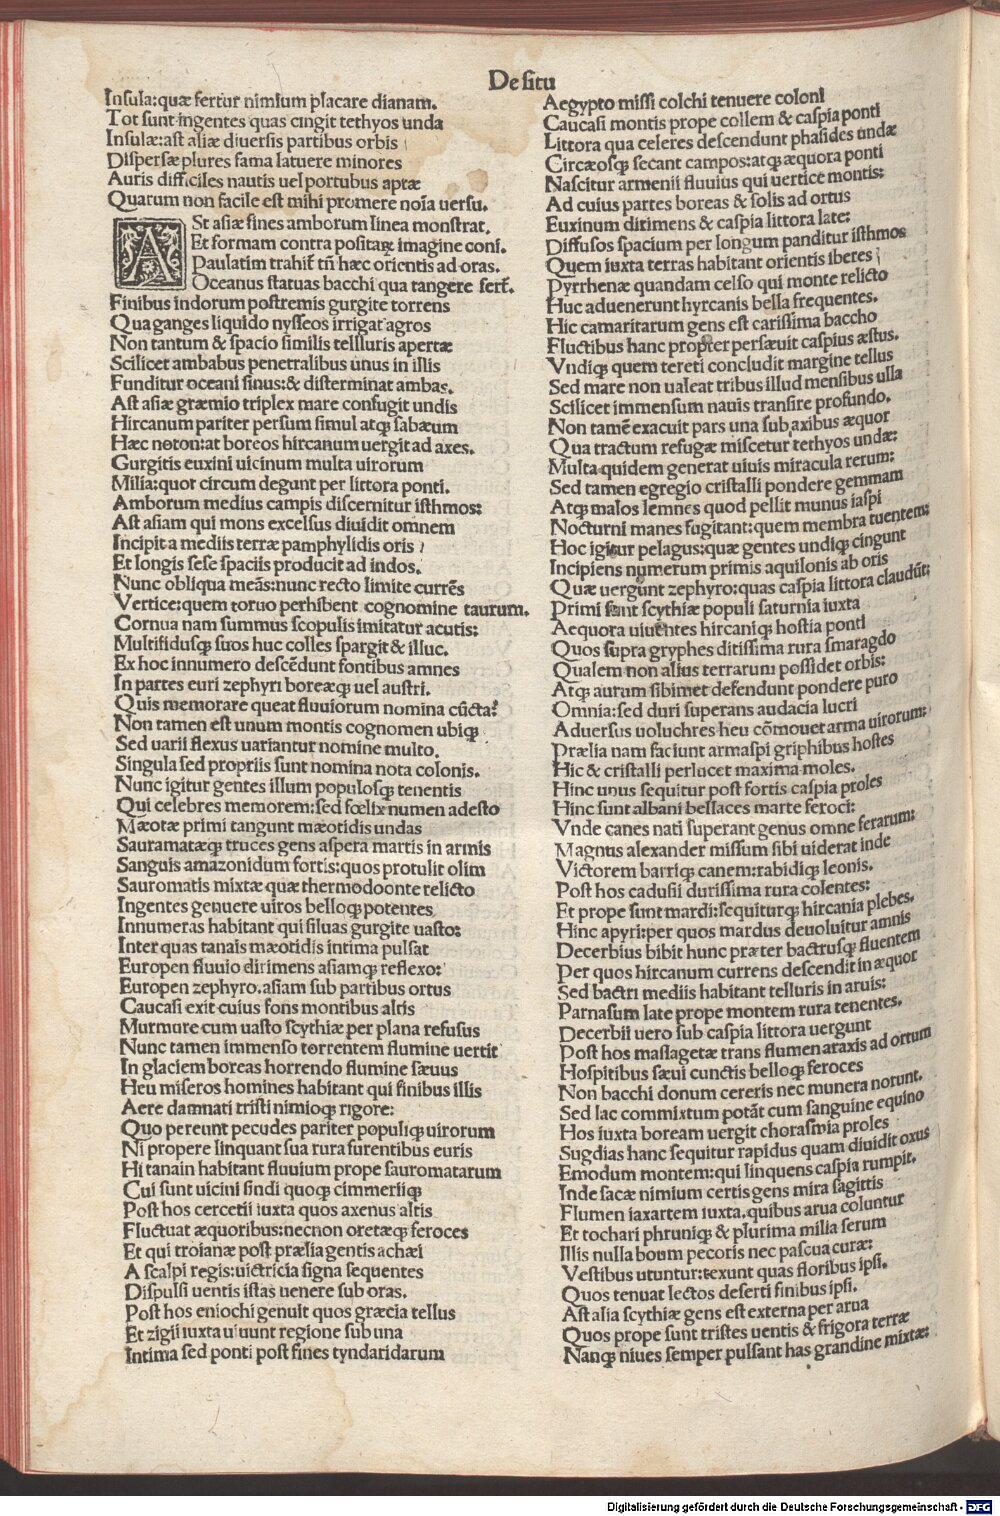 De situ
Insula:quæ fertur nimium placare dianam.
Tot sunt ingentes quas cingit tethyos unda
Insulæ:ast aliæ diuersis partibus orbis
Dispersæ plures fama latuere minores
Auris difficiles nautis uel portubus aptæ
Quarum non facile est mihi promere noīa uersu.
ASt asiæ fines amborum linea monstrat.
Et formam contra positaꝝ imagine coni.
Paulatim trahit̃ tñ hæc orientis ad oras.
Oceanus statuas bacchi qua tangere fert̃.
Finibus indorum postremis gurgite torrens
Qua ganges liquido nysseos irrigat agros
Non tantum & spacio similis tellluris apertæ
Scilicet ambabus penetralibus unus in illis
Funditur oceani sinus:& disterminat ambas.
Ast asiæ græmio triplex mare confugit undis
Hircanum pariter persum simul atqꝫ sabæum
Hæc noton:at boreos hircanum uergit ad axes.
Gurgitis euxini uicinum multa uirorum
Milia:quot circum degunt per littora ponti.
Amborum medius campis discernitur isthmos:
Ast asiam qui mons excelsus diuidit omnem
Incipit a mediis terræ pamphylidis oris
Et longis sese spaciis producit ad indos.
Nunc obliqua meãs:nunc recto limite currẽs
Vertice:quem toruo perhibent cognomine taurum.
Cornua nam summus scopulis imitatur acutis:
Multifidusqꝫ suos huc colles spargit & illuc.
Ex hoc innumero descẽdunt fontibus amnes
In partes euri zephyri boreæqꝫ uel austri.
Quis memorare queat fluuiorum nomina cũcta?
Non tamen est unum montis cognomen ubiqꝫ
Sed uarii flexus uariantur nomine multo.
Singula sed propriis sunt nomina nota colonis.
Nunc igitur gentes illum populosqꝫ tenentis
Qui celebres memorem:sed fœlix numen adesto
Mæotæ primi tangunt mæotidis undas
Sauramatæqꝫ truces gens aspera martis in armis
Sanguis amazonidum fortis:quos protulit olim
Sauromatis mixtæ quæ thermodoonte relicto
Ingentes genuere uiros belloqꝫ potentes
Innumeras habitant qui siluas gurgite uasto:
Inter quas tanais mæotidis intima pulsat
Europen fluuio dirimens asiamqꝫ reflexo:
Europen zephyro.asiam sub partibus ortus
Caucasi exit cuius fons montibus altis
Murmure cum uasto scythiæ per plana refusus
Nunc tamen immenso torrentem flumine uertit
In glaciem boreas horrendo flumine sæuus
Heu miseros homines habitant qui finibus illis
Aere damnati tristi nimioqꝫ rigore:
Quo pereunt pecudes pariter populiqꝫ uirorum
Ni propere linquant sua rura furentibus euris
Hi tanain habitant fluuium prope sauromatarum
Cui sunt uicini sindi quoqꝫ cimmeriiqꝫ
Post hos cercetii iuxta quos axenus altis
Fluctuat æquoribus:necnon oretæqꝫ feroces
Et qui troianæ post prælia gentis achæi
A scalpi regis:uictricia signa sequentes
Dispulsi uentis istas uenere sub oras.
Post hos eniochi genuit quos græcia tellus
Et zigii iuxta uiuunt regione sub una
Intima sed ponti post fines tyndaridarum
Aegypto missi colchi tenuere coloni
Caucasi montis prope collem & caspia ponti
Littora qua celeres descendunt phasides undæ
Circæosqꝫ secant campos:atqꝫ æquora ponti
Nascitur armenii fluuius qui uertice montis:
Ad cuius partes boreas & solis ad ortus
Euxinum dirimens & caspia littora late:
Diffusos spacium per longum panditur isthmos
Quem iuxta terras habitant orientis iberes
Pyrrhenæ quandam celso qui monte relicto
Huc aduenerunt hyrcanis bella frequentes.
Hic camaritarum gens est carissima baccho
Fluctibus hanc propter persæuit caspius æstus.
Vndiqꝫ quem tereti concludit margine tellus
Sed mare non ualeat tribus illud mensibus ulla
Scilicet immensum nauis transire profundo.
Non tamẽ exacuit pars una sub axibus æquor
Qua tractum refugæ miscetur tethyos undæ:
Multa quidem generat uiuis miracula rerum:
Sed tamen egregio cristalli pondere gemmam
Atqꝫ malos lemnes quod pellit munus iaspi
Nocturni manes fugitant:quem membra tuentem:
Hoc igitur pelagus:quæ gentes undiqꝫ cingunt
Incipiens numerum primis aquilonis ab oris
Quæ uergunt zephyro:quas caspia littora claudũt:
Primi sunt scythiæ populi saturnia iuxta
Aequora uiuentes hircaniqꝫ hostia ponti
Quos supra gryphes ditissima rura smaragdo
Qualem non alius terrarum possidet orbis:
Atqꝫ aurum sibimet defendunt pondere puro
Omnia:sed duri superans audacia lucri
Aduersus uoluchres heu cõmouet arma uirorum:
Prælia nam faciunt armaspi griphibus hostes
Hic & cristalli perlucet maxima moles.
Hinc unus sequitur post fortis caspia proles
Hinc sunt albani bellaces marte feroci:
Vnde canes nati superant genus omne ferarum:
Magnus alexander missum sibi uiderat inde
Victorem barriqꝫ canem:rabidiqꝫ leonis.
Post hos cadusii durissima rura colentes:
Et prope sunt mardi:sequiturqꝫ hircania plebes.
Hinc apyri:per quos mardus deuoluitur amnis
Decerbius bibit hunc præter bactrusqꝫ fluentem
Per quos hircanum currens descendit in æquor
Sed bactri mediis habitant telluris in aruis:
Parnasum late prope montem rura tenentes.
Decerbii uero sub caspia littora uergunt
Post hos massagetæ trans flumen araxis ad ortum
Hospitibus sæui cunctis belloqꝫ feroces
Non bacchi donum cereris nec munera norunt.
Sed lac commixtum potãt cum sanguine equino
Hos iuxta boream uergit chorasmia proles
Sugdias hanc sequitur rapidus quam diuidit oxus
Emodum montem:qui linquens caspia rumpit.
Inde sacæ nimium certis gens mira sagittis
Flumen iaxartem iuxta.quibus arua coluntur
Et tochari phruniqꝫ & plurima milia serum
Illis nulla boum pecoris nec pascua curæ:
Vestibus utuntur:texunt quas floribus ipsi.
Quos tenuat lectos deserti finibus ipsi.
Ast alia scythiæ gens est externa per arua
Quos prope sunt tristes uentis & frigora terræ
Nanqꝫ niues semper pulsant has grandine mixtæ:
Digitalisierung gefördert durch die Deutsche Forschungsgemeinschaft - DFG